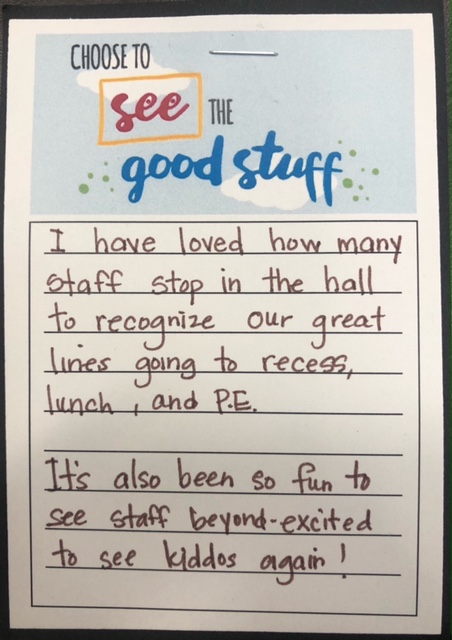 CHOOSE TO
see THE
good stuff
I have loved how many
staff stop in the hall
to recognize our great
lines going to recess,
lunch, and P.E.
It's also been so fun to
see staff beyond-excited
to see kiddos again!